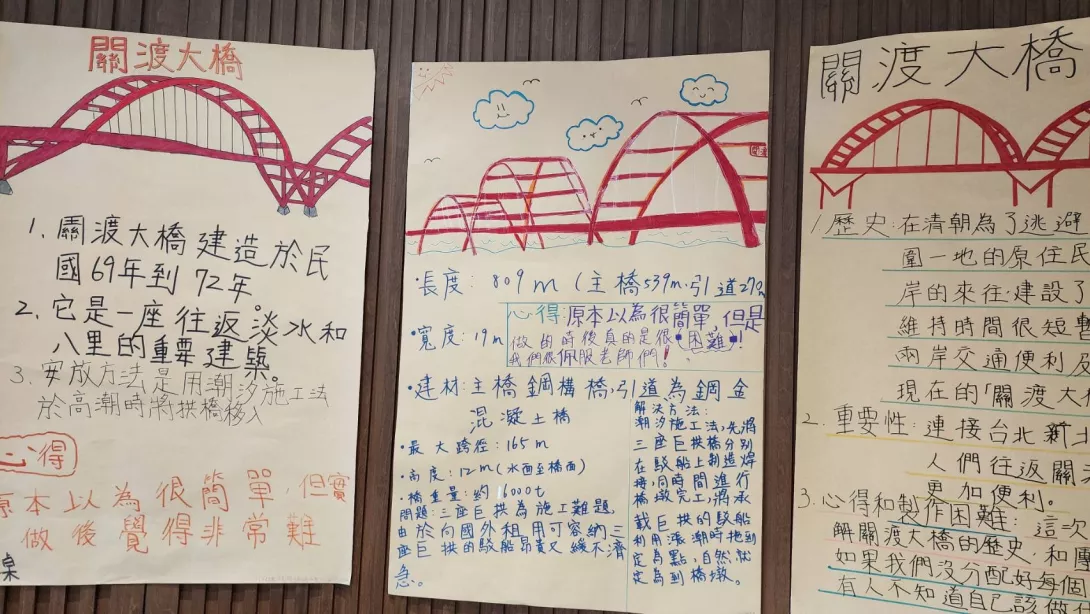 關渡大橋
1. 關渡大橋建造於民
國69年到72年。
2. 它是一座往返淡水和
八里的重要建築。
3. 安放方法是用潮汐施工法
於高潮時將拱橋移入
心得
原本以為很簡單,但實
做後覺得非常難
長度: 809m(主橋539m,引道270
心得:原本以為很簡單,但是
做的時後真的是很困難!
我們很佩服老師們!
寬度: 19m
建材:主橋鋼構橋,引道為鋼金
混凝土橋
最大跨徑: 165m
高度: 12m(水面至橋面)
橋重量:約16000t
問題:三座巨拱為施工難題,
由於向國外租用可容納三
座巨拱的駁船昂貴又緩不濟
急。
解決方法:
潮汐施工法,先將
三座巨拱橋分別
在駁船上製造焊
接,同時間進行
橋墩完工,將承
載巨拱的駁船
利用漲潮時拖到
定為點,自然就
定為到橋墩。
關渡大橋
1. 歷史:在清朝為了逃避
圍一地的原住民
岸的來往,建設了
維持時間很短暫
兩岸交通便利及
現在的「關渡大
2. 重要性:連接台北新北
人們往返關
更加便利。
3. 心得和製作困難:這次
解關渡大橋的歷史,和團
如果我們沒分配好每個
有人不知道自己該做